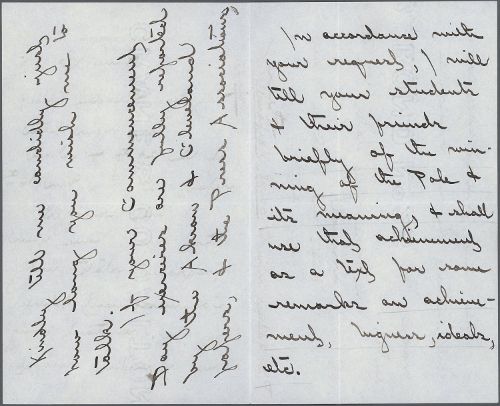 In accordance with
your request, I will
tell your students
& their friends
briefly of the win-
ning of the Pole &
its meaning, & shall
use that achievement
as a text for some
remarks on achieve-
ment, bigness, ideals,
etc.
Kindly tell me candidly just
how long you wish me to
talk.
If your Commencement
Day exercises are fully reported
by the Akron & Cleveland
papers, & the Press Associations,